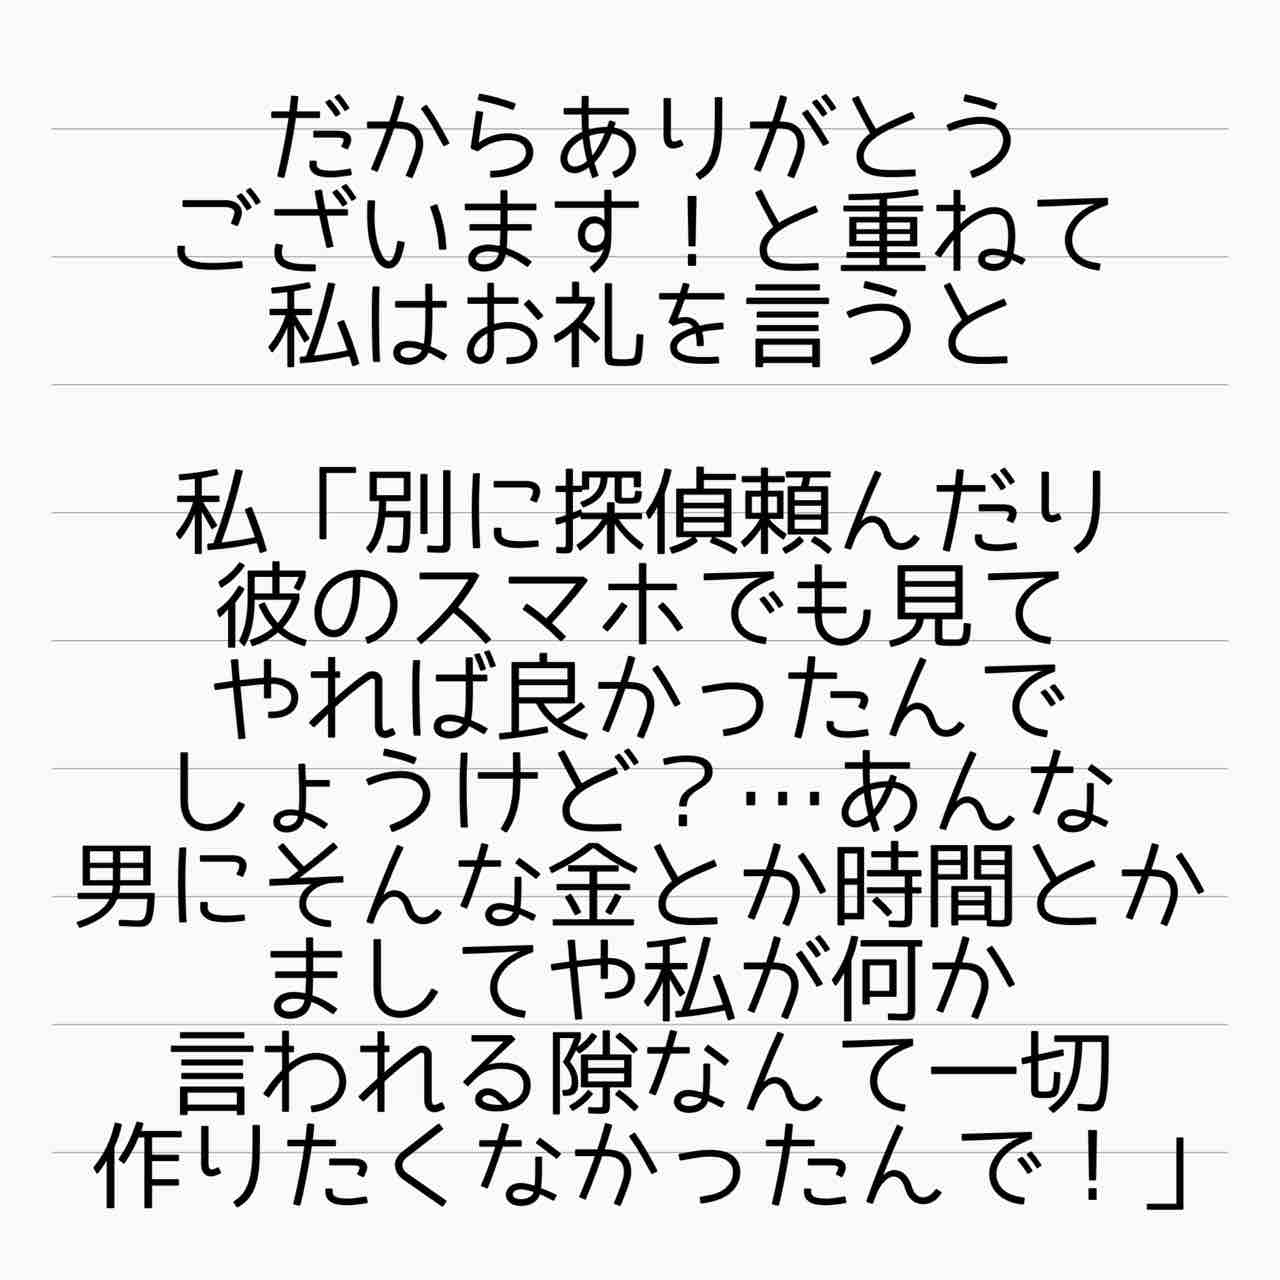 だからありがとう
ございます！と重ねて
私はお礼を言うと
私「別に探偵頼んだり
彼のスマホでも見て
やれば良かったんで
しょうけど？…あんな
男にそんな金とか時間とか
ましてや私が何か
言われる隙なんて一切
作りたくなかったんで！」